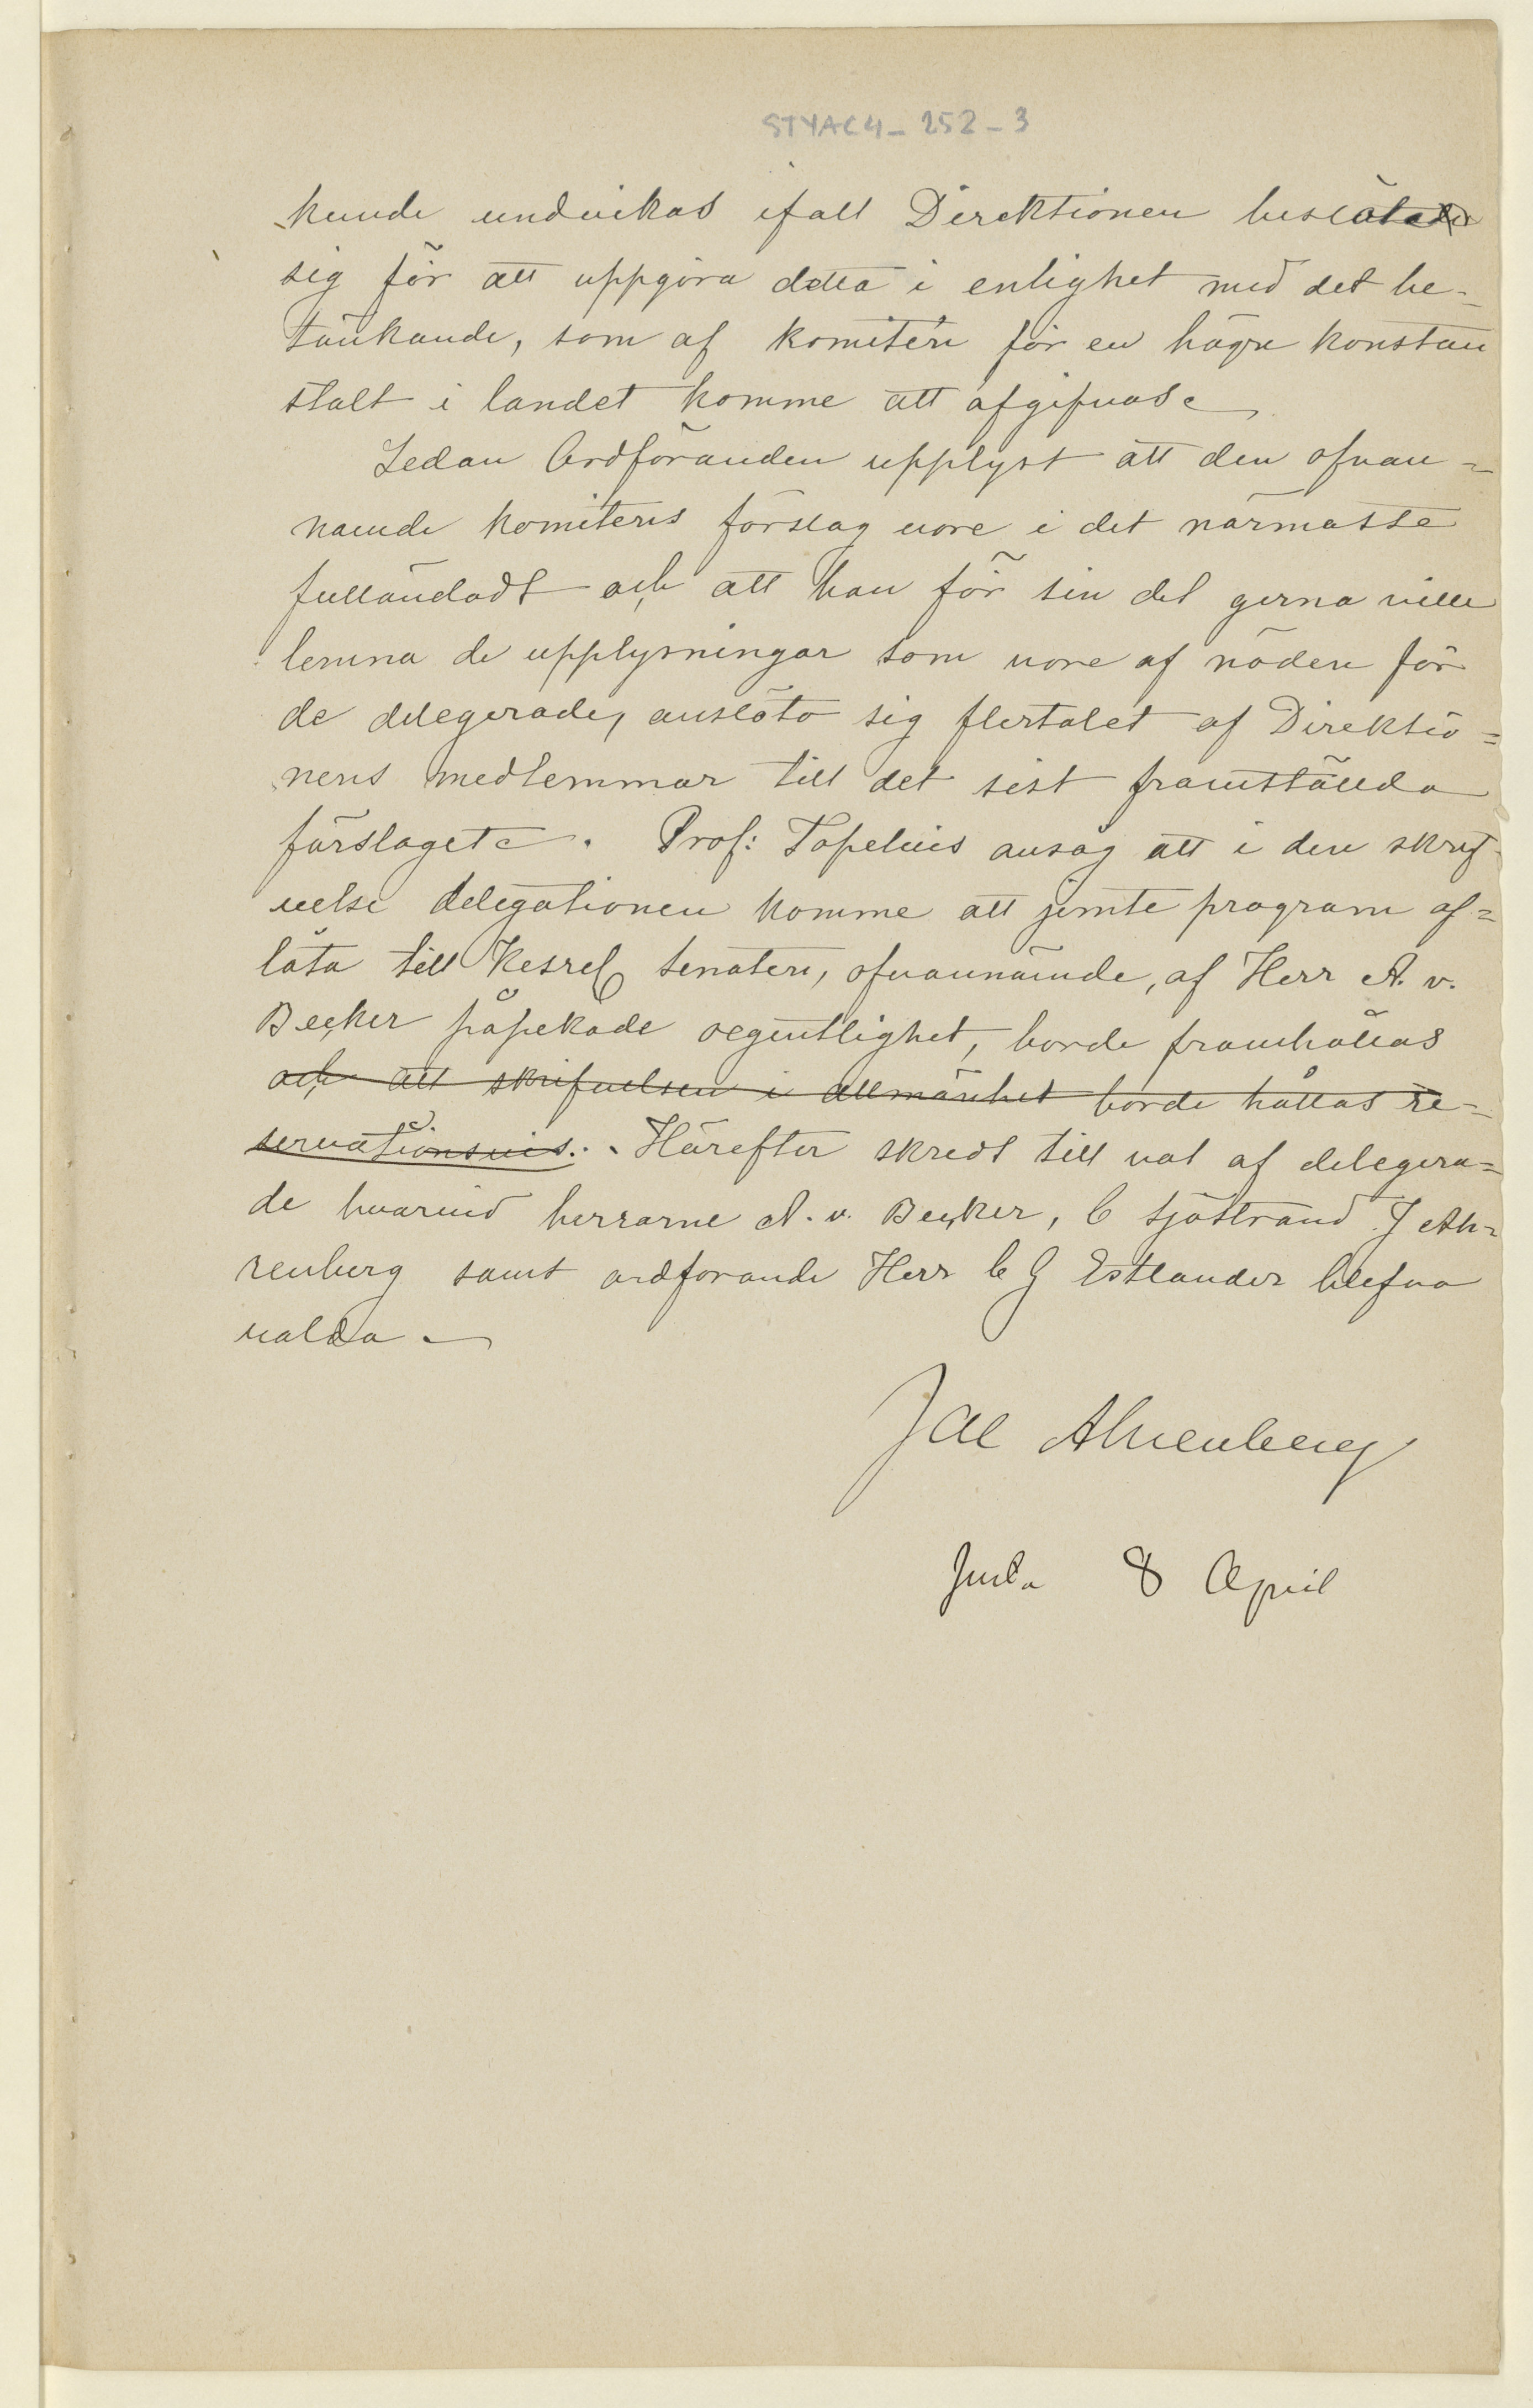 STYAC4-252-3
kunde undvikas ifall Direktionen beslöte
sig för att uppgöra detta i enlighet med det be-
tänkande, som af komitén för en högre konstan
stalt i landet komme att afgifvas.
Sedan Ordföranden upplyst att den ofvan-
nämde komiténs förslag vore i det närmaste
fulländadt och att han för sin del gerna ville
lemna de upplysningar som vore af nöden för
de delegerade, anslöto sig flertalet af Direktio=
nens medlemmar till det sist framstälda
förslaget. Prof: Topelius ansåg att i den skrif-
velse delegationen komme att jemte program af=
låta till Kejserl senaten, ofvannämde, af Herr A. v.
Becker påpekade oegentlighet, borde framhållas
och att skrifvelsen i allmänhet borde hållas re-
servationsvis. Härefter skreds till val af delegera=
de hvarvid herrarne A. v. Becker, C Sjöstrand J Ah-
renberg samt ordförande Herr C G Estlander blefvo
valda.
Jac Ahrenberg
8 April